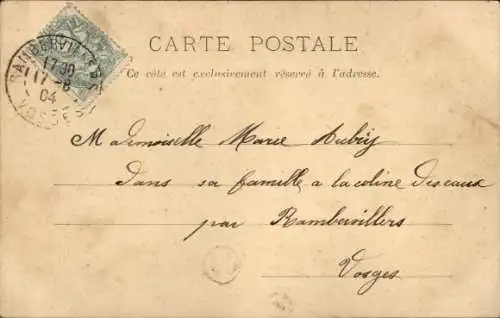 CARTE POSTALE
Ce côté est exclusivement réservé à l'adresse.
RAMBERVILLERS
17 30
17 -8
04
VOSGES
Mademoiselle Marie Aubry
dans sa famille a la coline des eaux
par Rambervillers
Vosges